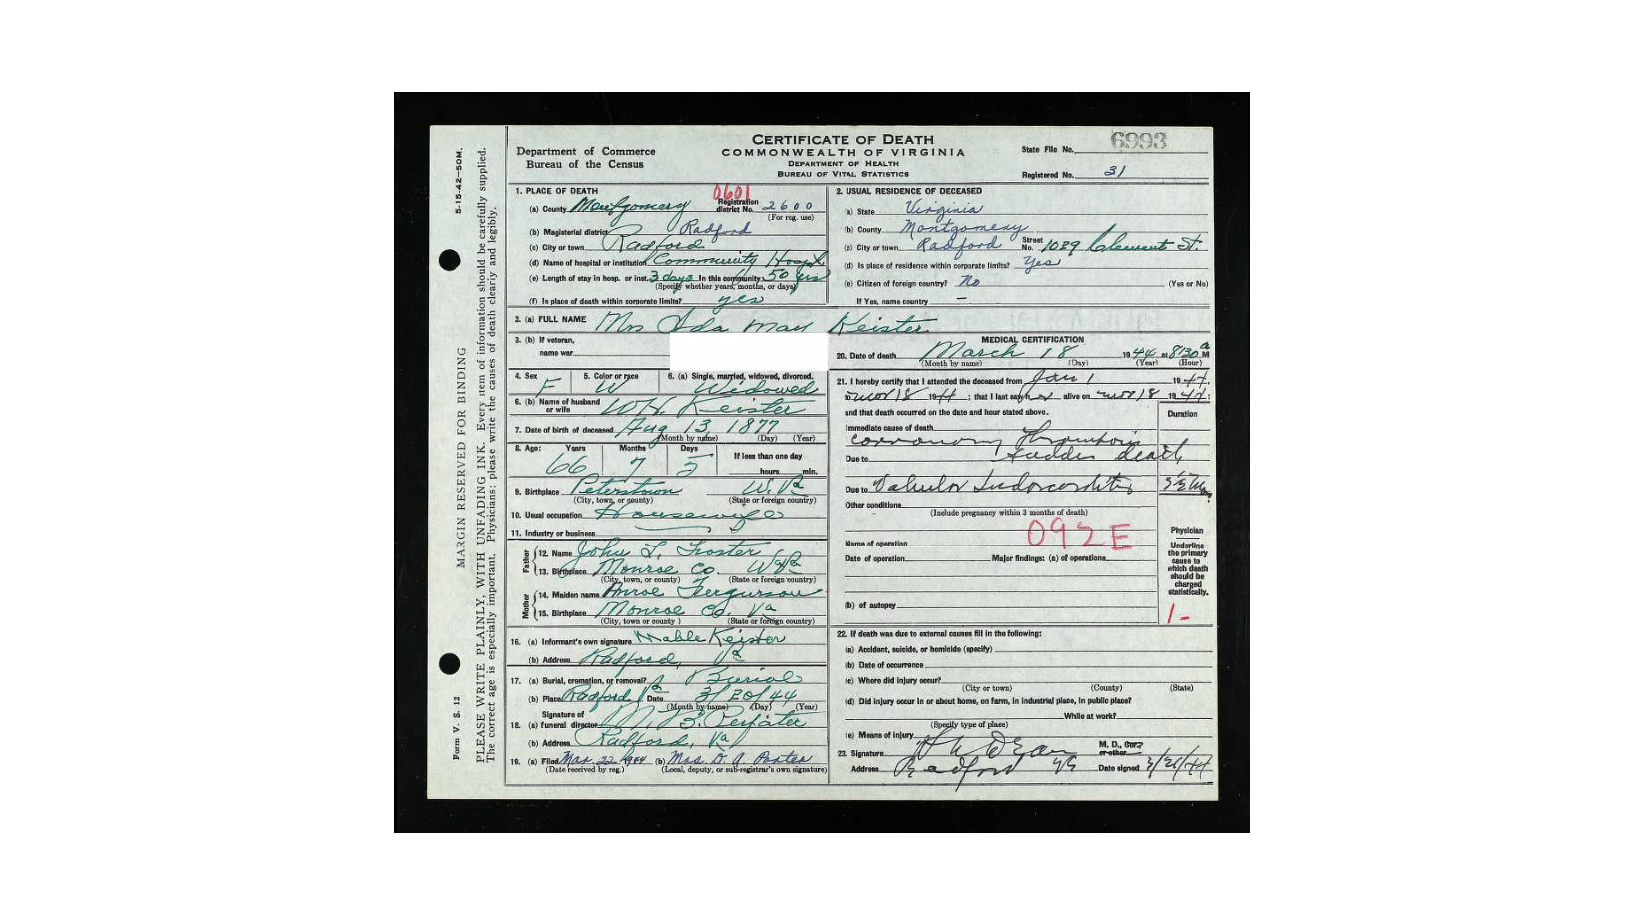 CERTIFICATE OF DEATH
COMMONWEALTH OF VIRGINIA
DEPARTMENT OF HEALTH
BUREAU OF VITAL STATISTICS
Department of Commerce
Bureau of the Census
6993
State File No.
Registered No. 31
5-15-42-50M.
MARGIN RESERVED FOR BINDING
Form V. S. 12
PLEASE WRITE PLAINLY, WITH UNFADING INK. Every item of information should be carefully supplied.
The correct age is especially important. Physicians: please write the causes of death clearly and legibly.
1. PLACE OF DEATH
0601
(a) County Montgomery Registration district No. 2600
(For reg. use)
(b) Magisterial district Radford
(c) City or town Radford
(d) Name of hospital or institution Community Hospl
(e) Length of stay in hosp. or inst. 3 days In this community 50 yrs
(Specify whether years, months, or days)
(f) Is place of death within corporate limits? yes
2. USUAL RESIDENCE OF DECEASED
(a) State Virginia
(b) County Montgomery
(c) City or town Radford Street No. 1039 Clement St.
(d) Is place of residence within corporate limits? Yes
(e) Citizen of foreign country? No (Yes or No)
If Yes, name country —
3. (a) FULL NAME Mrs Ada May Keister
3. (b) If veteran,
name war
4. Sex F
5. Color or race W
6. (a) Single, married, widowed, divorced. Widowed
6. (b) Name of husband or wife W.H. Keister
7. Date of birth of deceased Aug 13, 1877
(Month by name) (Day) (Year)
8. Age: Years Months Days If less than one day
66 7 5 hours min.
9. Birthplace Peterstown W. Va
(City, town, or county) (State or foreign country)
10. Usual occupation Housewife
11. Industry or business
Father
12. Name John L. Foster
13. Birthplace Monroe Co. W Va
(City, town, or county) (State or foreign country)
Mother
14. Maiden name Fergurson
15. Birthplace Monroe Co. Va
(City, town, or county) (State or foreign country)
16. (a) Informant's own signature Mable Keister
(b) Address Radford, Va
17. (a) Burial, cremation, or removal? Burial
(b) Place Radford Va Date 3/20/44
(Month by name) (Day) (Year)
18. (a) Signature of funeral director
(b) Address Radford, Va
19. (a) Filed Mar. 22 1944 (b) Mrs. D. A. Porter
(Date received by reg.) (Local, deputy, or sub-registrar's own signature)
MEDICAL CERTIFICATION
20. Date of death March 18 1944 at 8:30 a M
(Month by name) (Day) (Year) (Hour)
21. I hereby certify that I attended the deceased from Jan 1 1944
to Mar 18 1944; that I last saw her alive on Mar 18 1944;
and that death occurred on the date and hour stated above.
Duration
Immediate cause of death
coronary thrombosis
Due to sudden death
Due to Valvular Endocarditis
Other conditions
(Include pregnancy within 3 months of death)
092E
Name of operation
Date of operation Major findings: (a) of operations
(b) of autopsy
Physician
Underline the primary cause to which death should be charged statistically.
1-
22. If death was due to external causes fill in the following:
(a) Accident, suicide, or homicide (specify)
(b) Date of occurrence
(c) Where did injury occur?
(City or town) (County) (State)
(d) Did injury occur in or about home, on farm, in industrial place, in public place?
While at work?
(Specify type of place)
(e) Means of injury
23. Signature M. D., Cor. or other
Address Radford Va Date signed 3/21/44